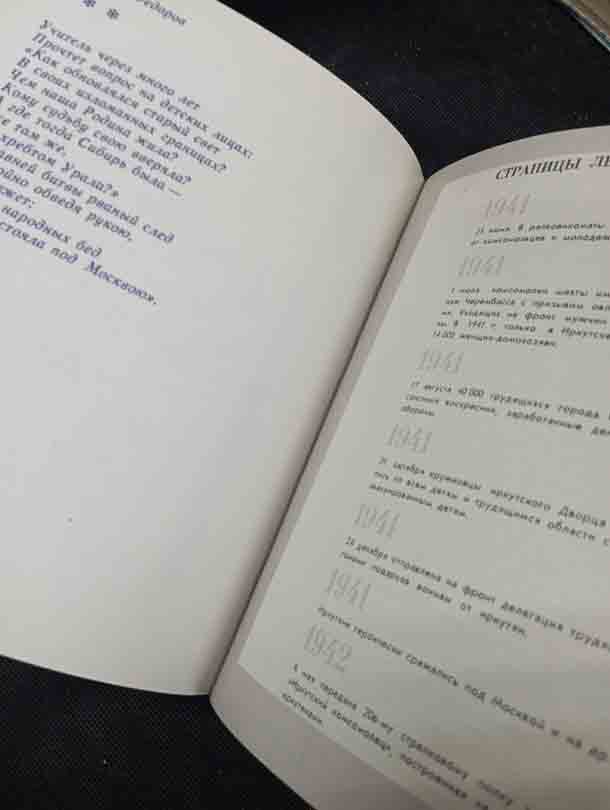 * *
Учитель через много лет
Прочтет вопрос на детских лицах:
«Как обновлялся старый свет
В своих изломанных границах?
Чем наша Родина жила?
Кому судьбу свою вверяла?
А где тогда Сибирь была —
же там же,
хребтом Урала?».
битвы рваный след
обведя рукою,
народных бед
стояла под Москвою».
СТРАНИЦЫ ЛЕ
1941
23 июня. В райвоенкоматы
от комсомольцев и молодежи
1941
1 июля комсомолки шахты им
ки Черембасса с призывом овл
ми, уходящих на фронт мужчин
ны. В 1941 г. только в Иркутске
14 000 женщин-домохозяек.
1941
17 августа 40 000 трудящихся города
союзных воскресник, заработанные де
обороны.
1941
октября кружковцы иркутского Дворца
лись ко всем детям и трудящимся области с
эвакуированным детям.
1941
декабря отправлена на фронт делегация трудя
подарков воинам от иркутян.
1941
Иркутяне героически сражались под Москвой и на
1942
8 мая передана 206-му стрелковому полку
«Иркутский комсомолец», построенная
иркутянами.